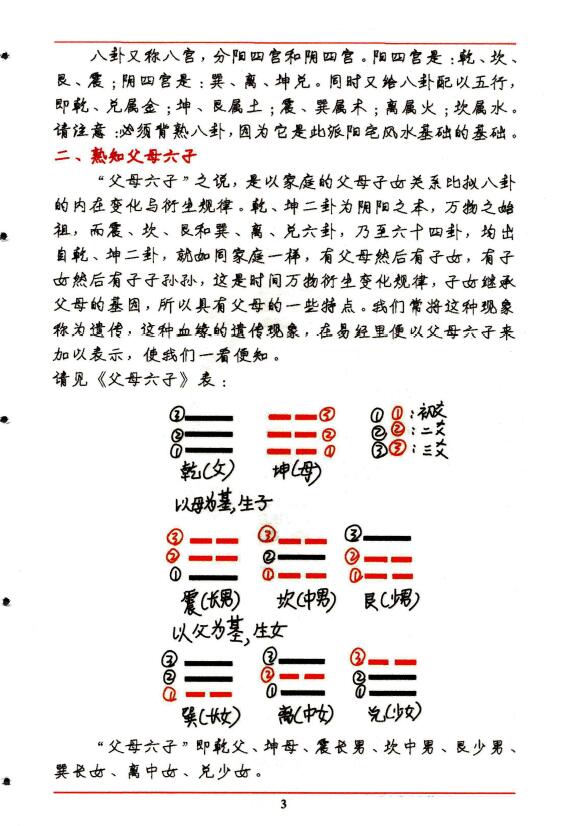 八卦又称八宫，分阳四宫和阴四宫。阳四宫是：乾、坎、
艮、震；阴四宫是：巽、离、坤兑。同时又给八卦配以五行，
即乾、兑属金；坤、艮属土；震、巽属木；离属火；坎属水。
请注意：必须背熟八卦，因为它是此派阳宅风水基础的基础。
二、熟知父母六子
“父母六子”之说，是以家庭的父母子女关系比拟八卦
的内在变化与衍生规律。乾、坤二卦为阴阳之本，万物之始
祖，而震、坎、艮和巽、离、兑六卦，乃至六十四卦，均出
自乾、坤二卦，就如同家庭一样，有父母然后有子女，有子
女然后有子子孙孙，这是时间万物衍生变化规律，子女继承
父母的基因，所以具有父母的一些特点。我们常将这种现象
称为遗传，这种血缘的遗传现象，在易经里便以父母六子来
加以表示，使我们一看便知。
请见《父母六子》表：
③ ③ ① ①：初爻
② ② ② ②：二爻
① ① ③ ③：三爻
乾(父) 坤(母)
以母为基,生子
③ ③ ③
② ② ②
① ① ①
震(长男) 坎(中男) 艮(少男)
以父为基,生女
③ ③ ③
② ② ②
① ① ①
巽(长女) 离(中女) 兑(少女)
“父母六子”即乾父、坤母、震长男、坎中男、艮少男、
巽长女、离中女、兑少女。
3